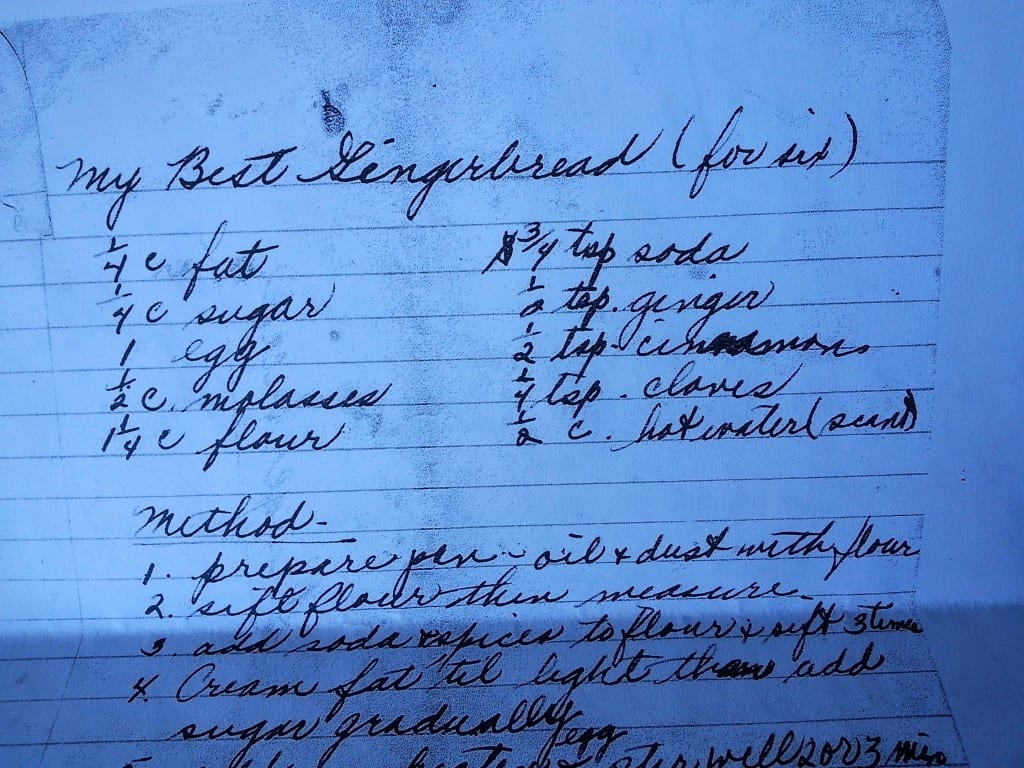 My Best Gingerbread (for six)
1/4 c fat
1/4 c sugar
1 egg
1/2 c. molasses
1 1/4 c flour
3/4 tsp soda
1/2 tsp. ginger
1/2 tsp. cinnamon
1/4 tsp. cloves
1/2 c. hot water (scant)
Method-
1. prepare pan - oil & dust with flour
2. sift flour then measure.
3. add soda & spices to flour & sift 3 times
4. Cream fat til light then add
sugar gradually
egg
well 2 or 3 min